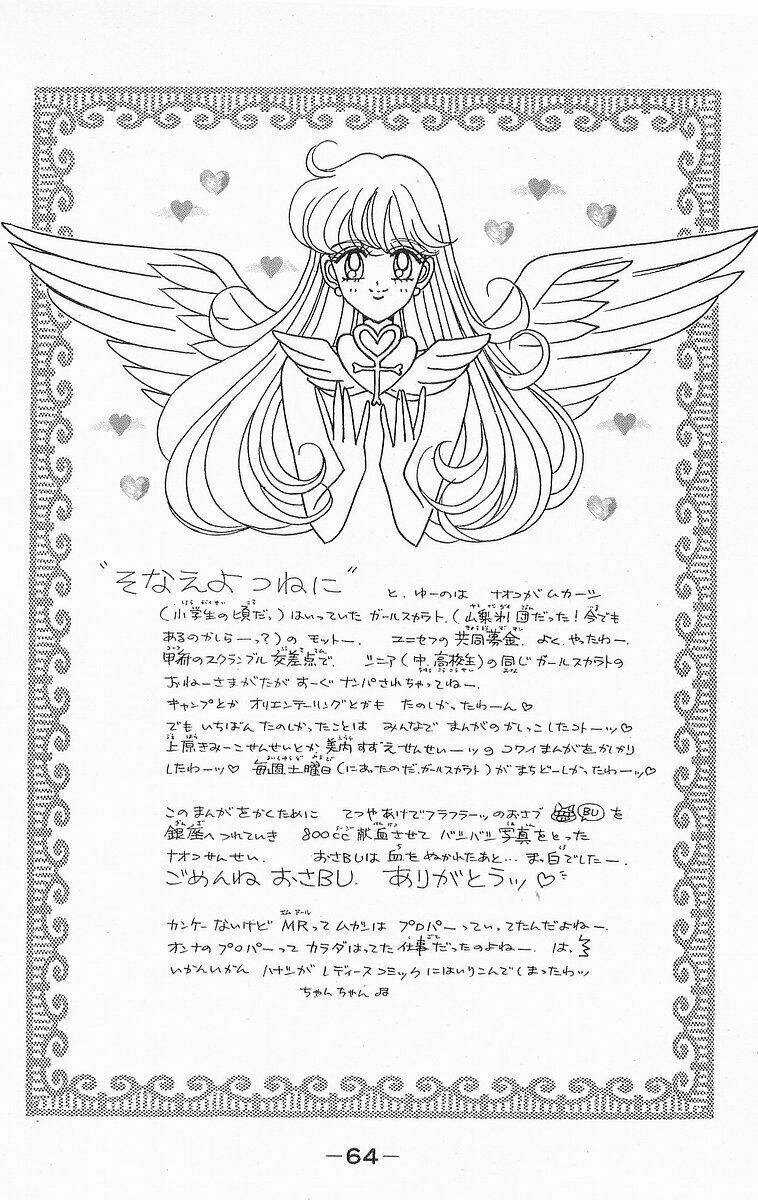 "そなえよつねに" と、ゆーのは ナオコがムカーシ
(小学生の頃だっ)はいっていた ガールスカウト、(山梨州団だった!今でも
あるのかしらーっ?)の モットー。 ユニセフの 共同募金、よく、やったわー。
甲府のスクランブル交差点で、シニア(中、高校生)の同じガールスカウトの
おねーさまがたがすーぐナンパされちゃってねー。
キャンプとか オリエンテーリングとかも たのしかったわーん♡
でも いちばん たのしかったことは みんなで まんがのかしっこしたコトーッ♡
上原きみーこせんせいとか、美内すずえせんせいーッの コワイまんがをかしかり
したわーッ♡ 毎週土曜日(にあったのだ、ガールスカウト)が まちどーしかったわーッ♡
このまんがをかくために てつやあけでフラフラーッのおさブ BU を
銀座へつれていき 800cc献血させて バリバリ写真をとった
ナオコせんせい。 おさBUは 血をぬかれたあと… まっ白でしたー。
ごめんね おさBU。 ありがとうッ♡
カンケーないけど MRって ムカシは プロパーっていってたんだよねー。
オンナのプロパーって カラダはってた仕事だったのよねー。は、
いかんいかん ハナシが レディースコミックにはいりこんでしまったわッ
ちゃんちゃん♫
—64—